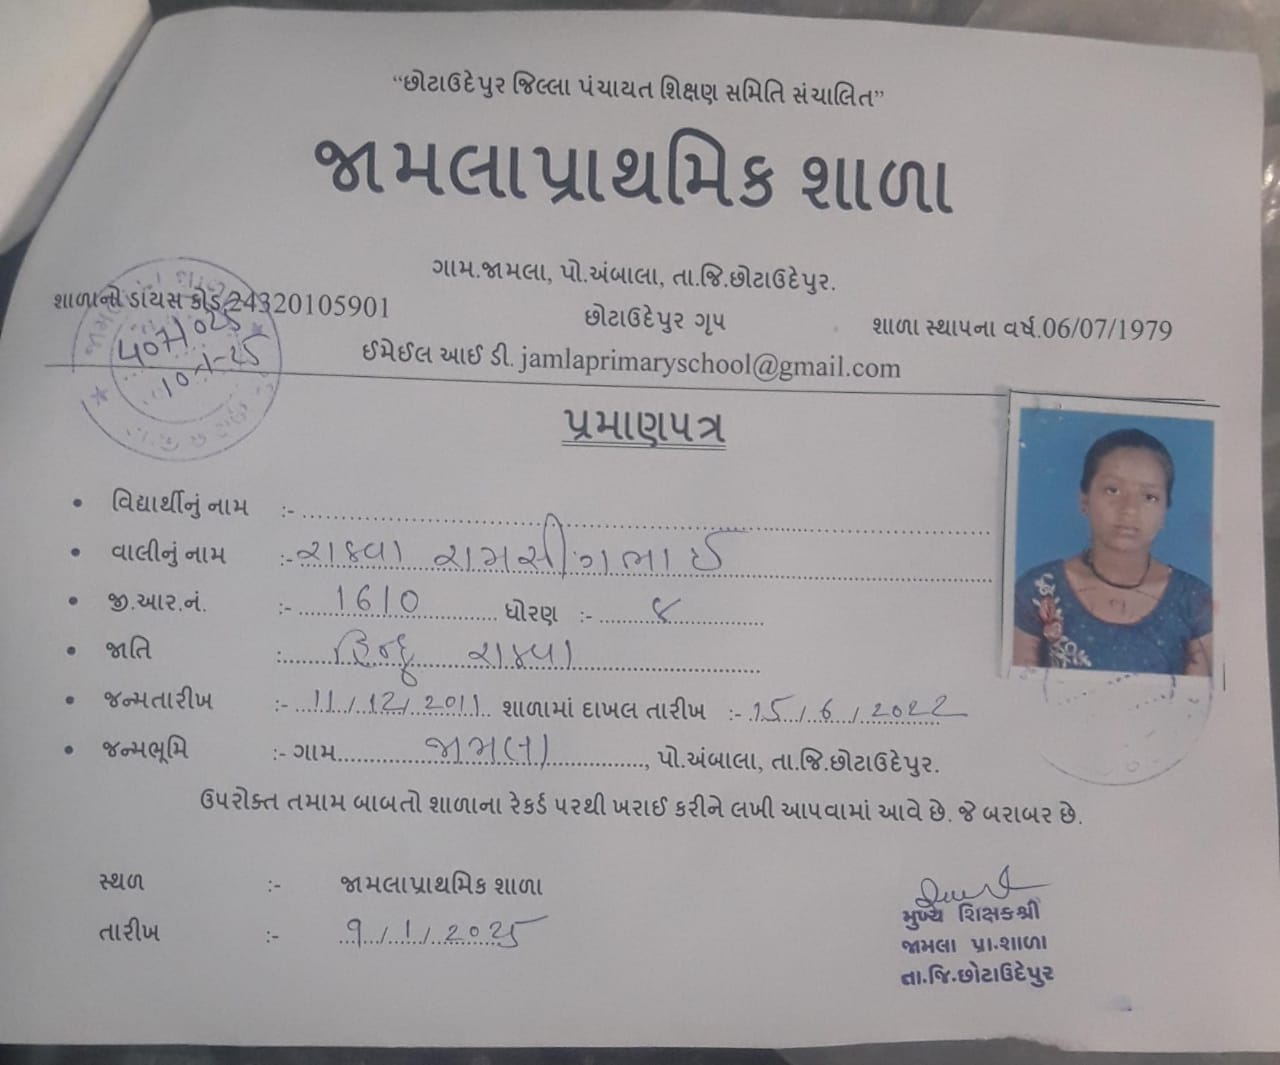 “છોટાઉદેપુર જિલ્લા પંચાયત શિક્ષણ સમિતિ સંચાલિત”
જામલાપ્રાથમિક શાળા
ગામ.જામલા, પો.અંબાલા, તા.જિ.છોટાઉદેપુર.
શાળાનો ડાયસ કોડ 24320105901
છોટાઉદેપુર ગૃપ
શાળા સ્થાપના વર્ષ.06/07/1979
ઈમેઈલ આઈ ડી. jamlaprimaryschool@gmail.com
10-1-25
પ્રમાણપત્ર
• વિદ્યાર્થીનું નામ :-
• વાલીનું નામ :- રાઠવા રામસીંગભાઈ
• જી.આર.નં. :- 1610 ધોરણ :- ૮
• જાતિ : હિન્દુ રાઠવા
• જન્મતારીખ :- 11/12/2011 શાળામાં દાખલ તારીખ :- 15/6/2022
• જન્મભૂમિ :- ગામ જામલા, પો.અંબાલા, તા.જિ.છોટાઉદેપુર.
ઉપરોક્ત તમામ બાબતો શાળાના રેકર્ડ પરથી ખરાઈ કરીને લખી આપવામાં આવે છે. જે બરાબર છે.
સ્થળ :- જામલાપ્રાથમિક શાળા
તારીખ :- 9/1/2025
મુખ્ય શિક્ષકશ્રી
જામલા પ્રા.શાળા
તા.જિ.છોટાઉદેપુર